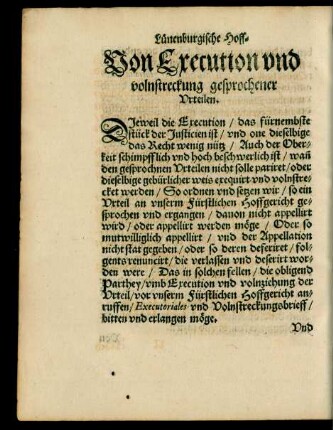 Lünenburgische Hoff-
Von Execution vnd
volnstreckung gesprochener
Vrteilen.
DIeweil die Execution / das fürnembste
stück der Justicien ist / vnd one dieselbige
das Recht wenig nütz / Auch der Ober-
keit schimpfflich vnd hoch beschwerlich ist / wañ
den gesprochnen Vrteilen nicht solle pariret / oder
dieselbige gebürlicher weis exequirt vnd volnstre-
cket werden / So ordnen vnd setzen wir / so ein
Vrteil an vnserm Fürstlichen Hoffgericht ge-
sprochen vnd ergangen / dauon nicht appellirt
wird / oder appellirt werden möge / Oder so
mutwilliglich appellirt / vnd der Appellation
nicht stat gegeben / oder so deren deferiret / fol-
gents renuncirt / die verlassen vnd deserirt wor-
den were / Das in solchen fellen / die obligend
Parthey / vmb Execution vnd volnziehung der
Vrteil / vor vnserm Fürstlichen Hoffgericht an-
ruffen / Executoriales vnd Volnstreckungsbrieff /
bitten vnd erlangen möge.
Vnd